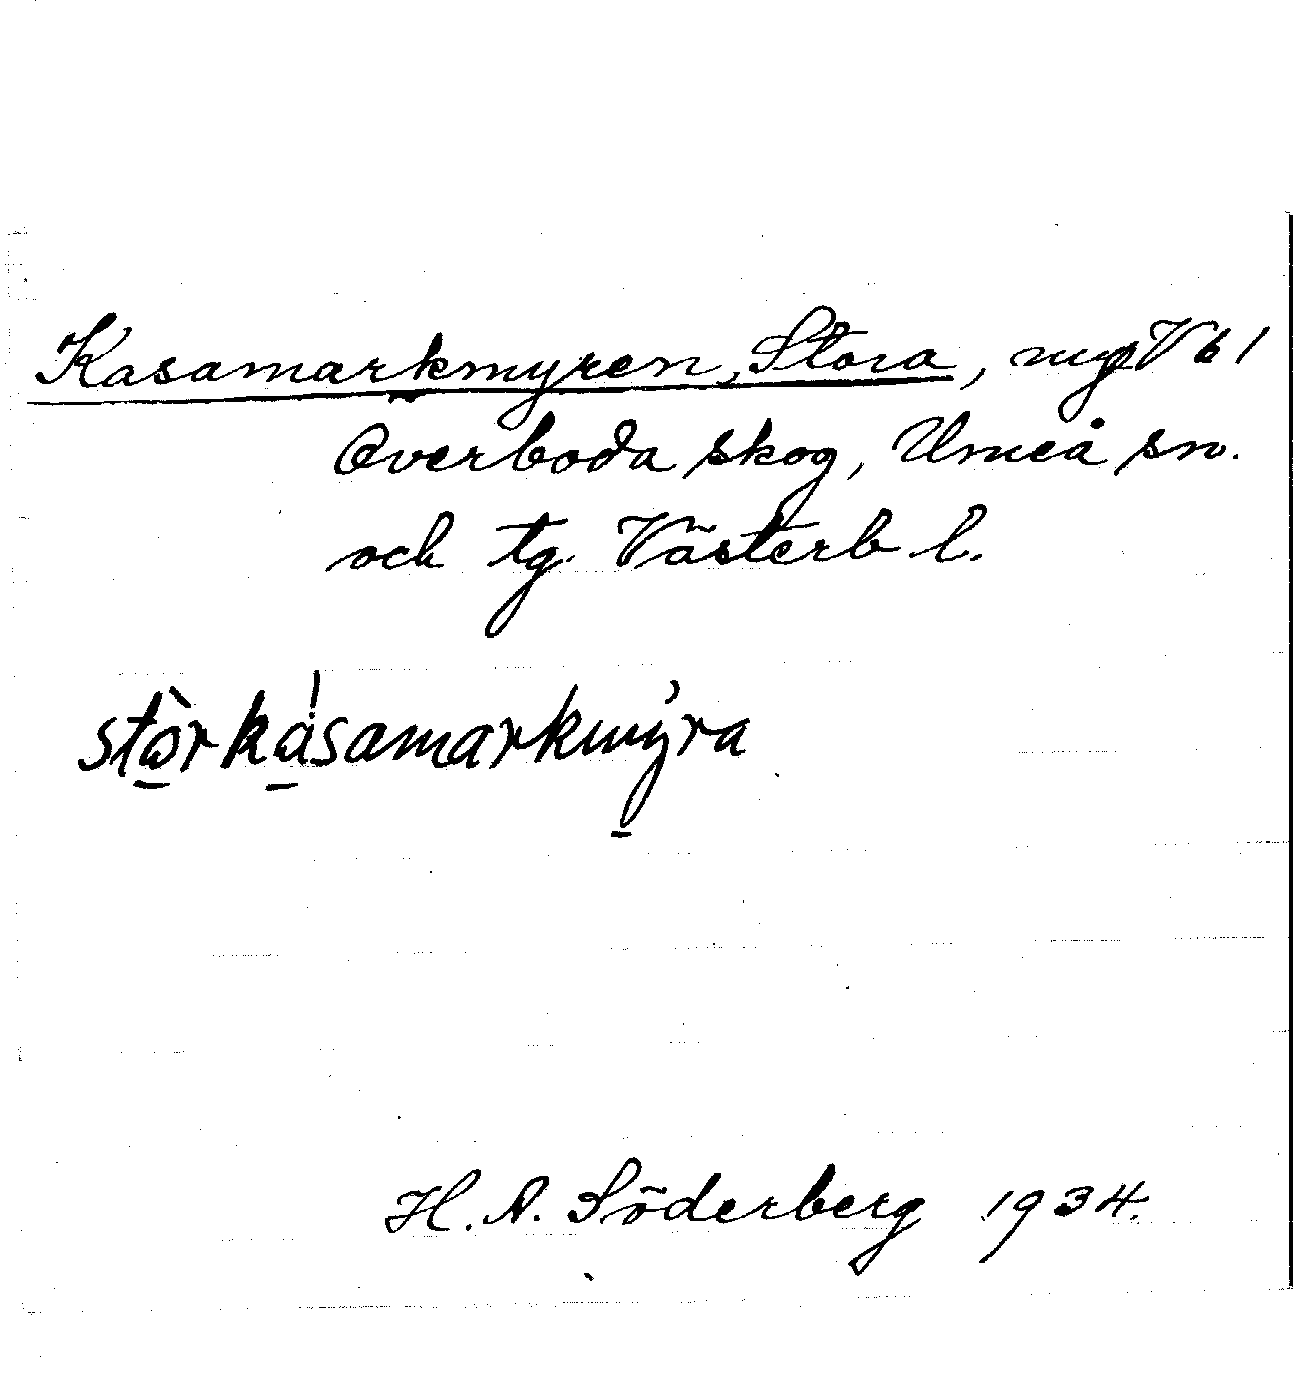 Kasamarkmyren, Stora, myr Vb 1
Överboda skog, Umeå sn.
och tg. Västerb l.
stòrkásamarkmy̠ra
H. A. Söderberg 1934.